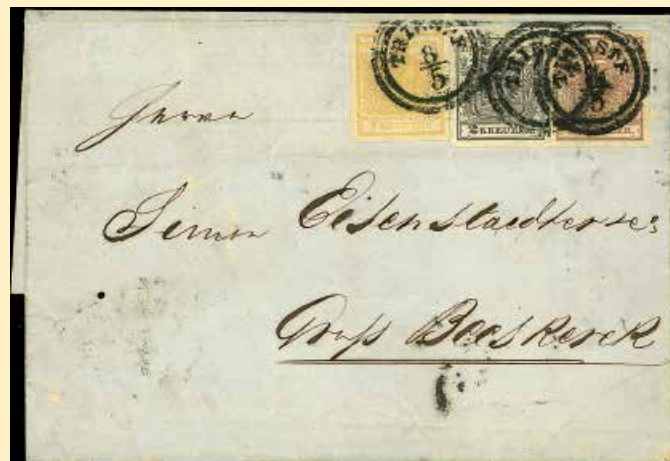 TRIESTE 8/5 TRIESTE TRIESTE
2 KREUZER
Herrn
Simon Eisenstaedter
Groß Becskerek